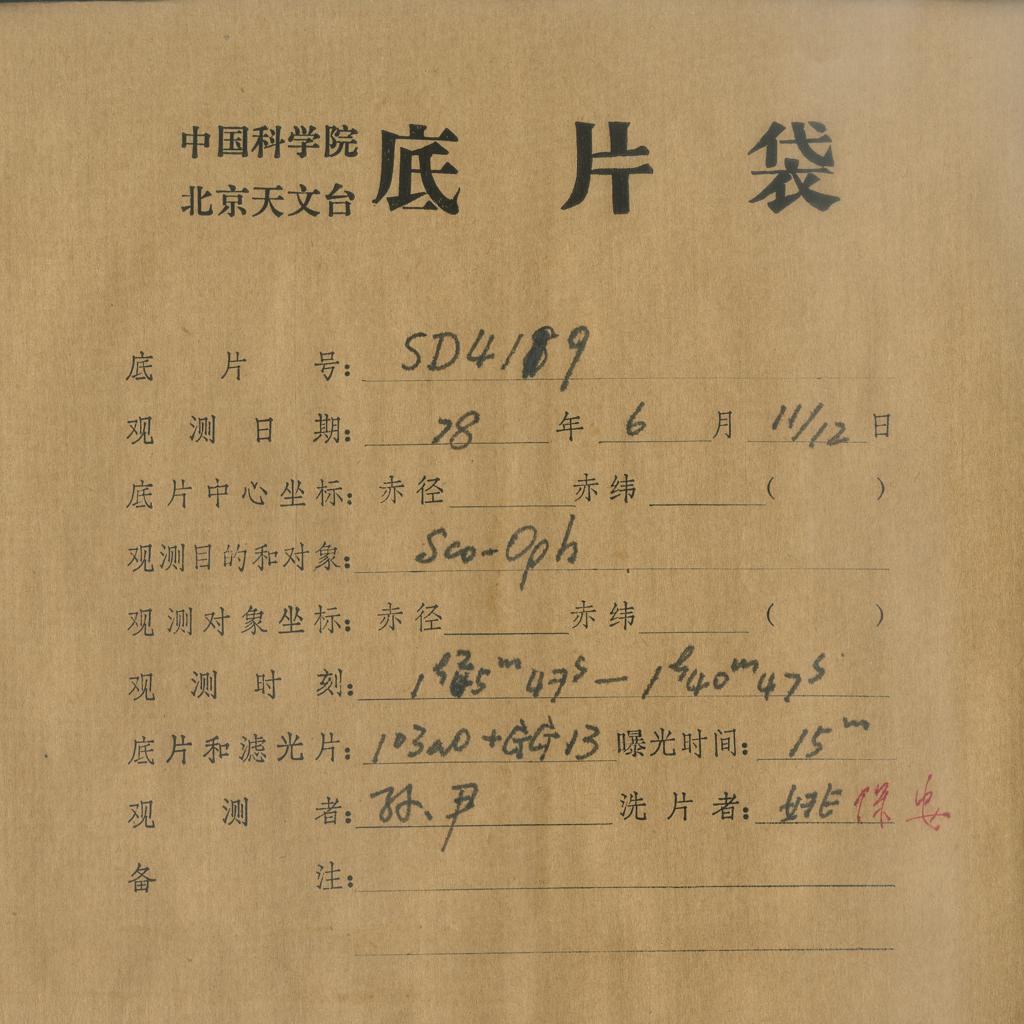 中国科学院
北京天文台
底片袋
底片号: SD4189
观测日期: 78年 6月 11/12日
底片中心坐标: 赤径 赤纬 ( )
观测目的和对象: Sco-Oph
观测对象坐标: 赤径 赤纬 ( )
观测时刻: 1h25m47s — 1h40m47s
底片和滤光片: 103aO+GG13 曝光时间: 15m
观测者: 孙、尹 洗片者: 姚保安
备注: